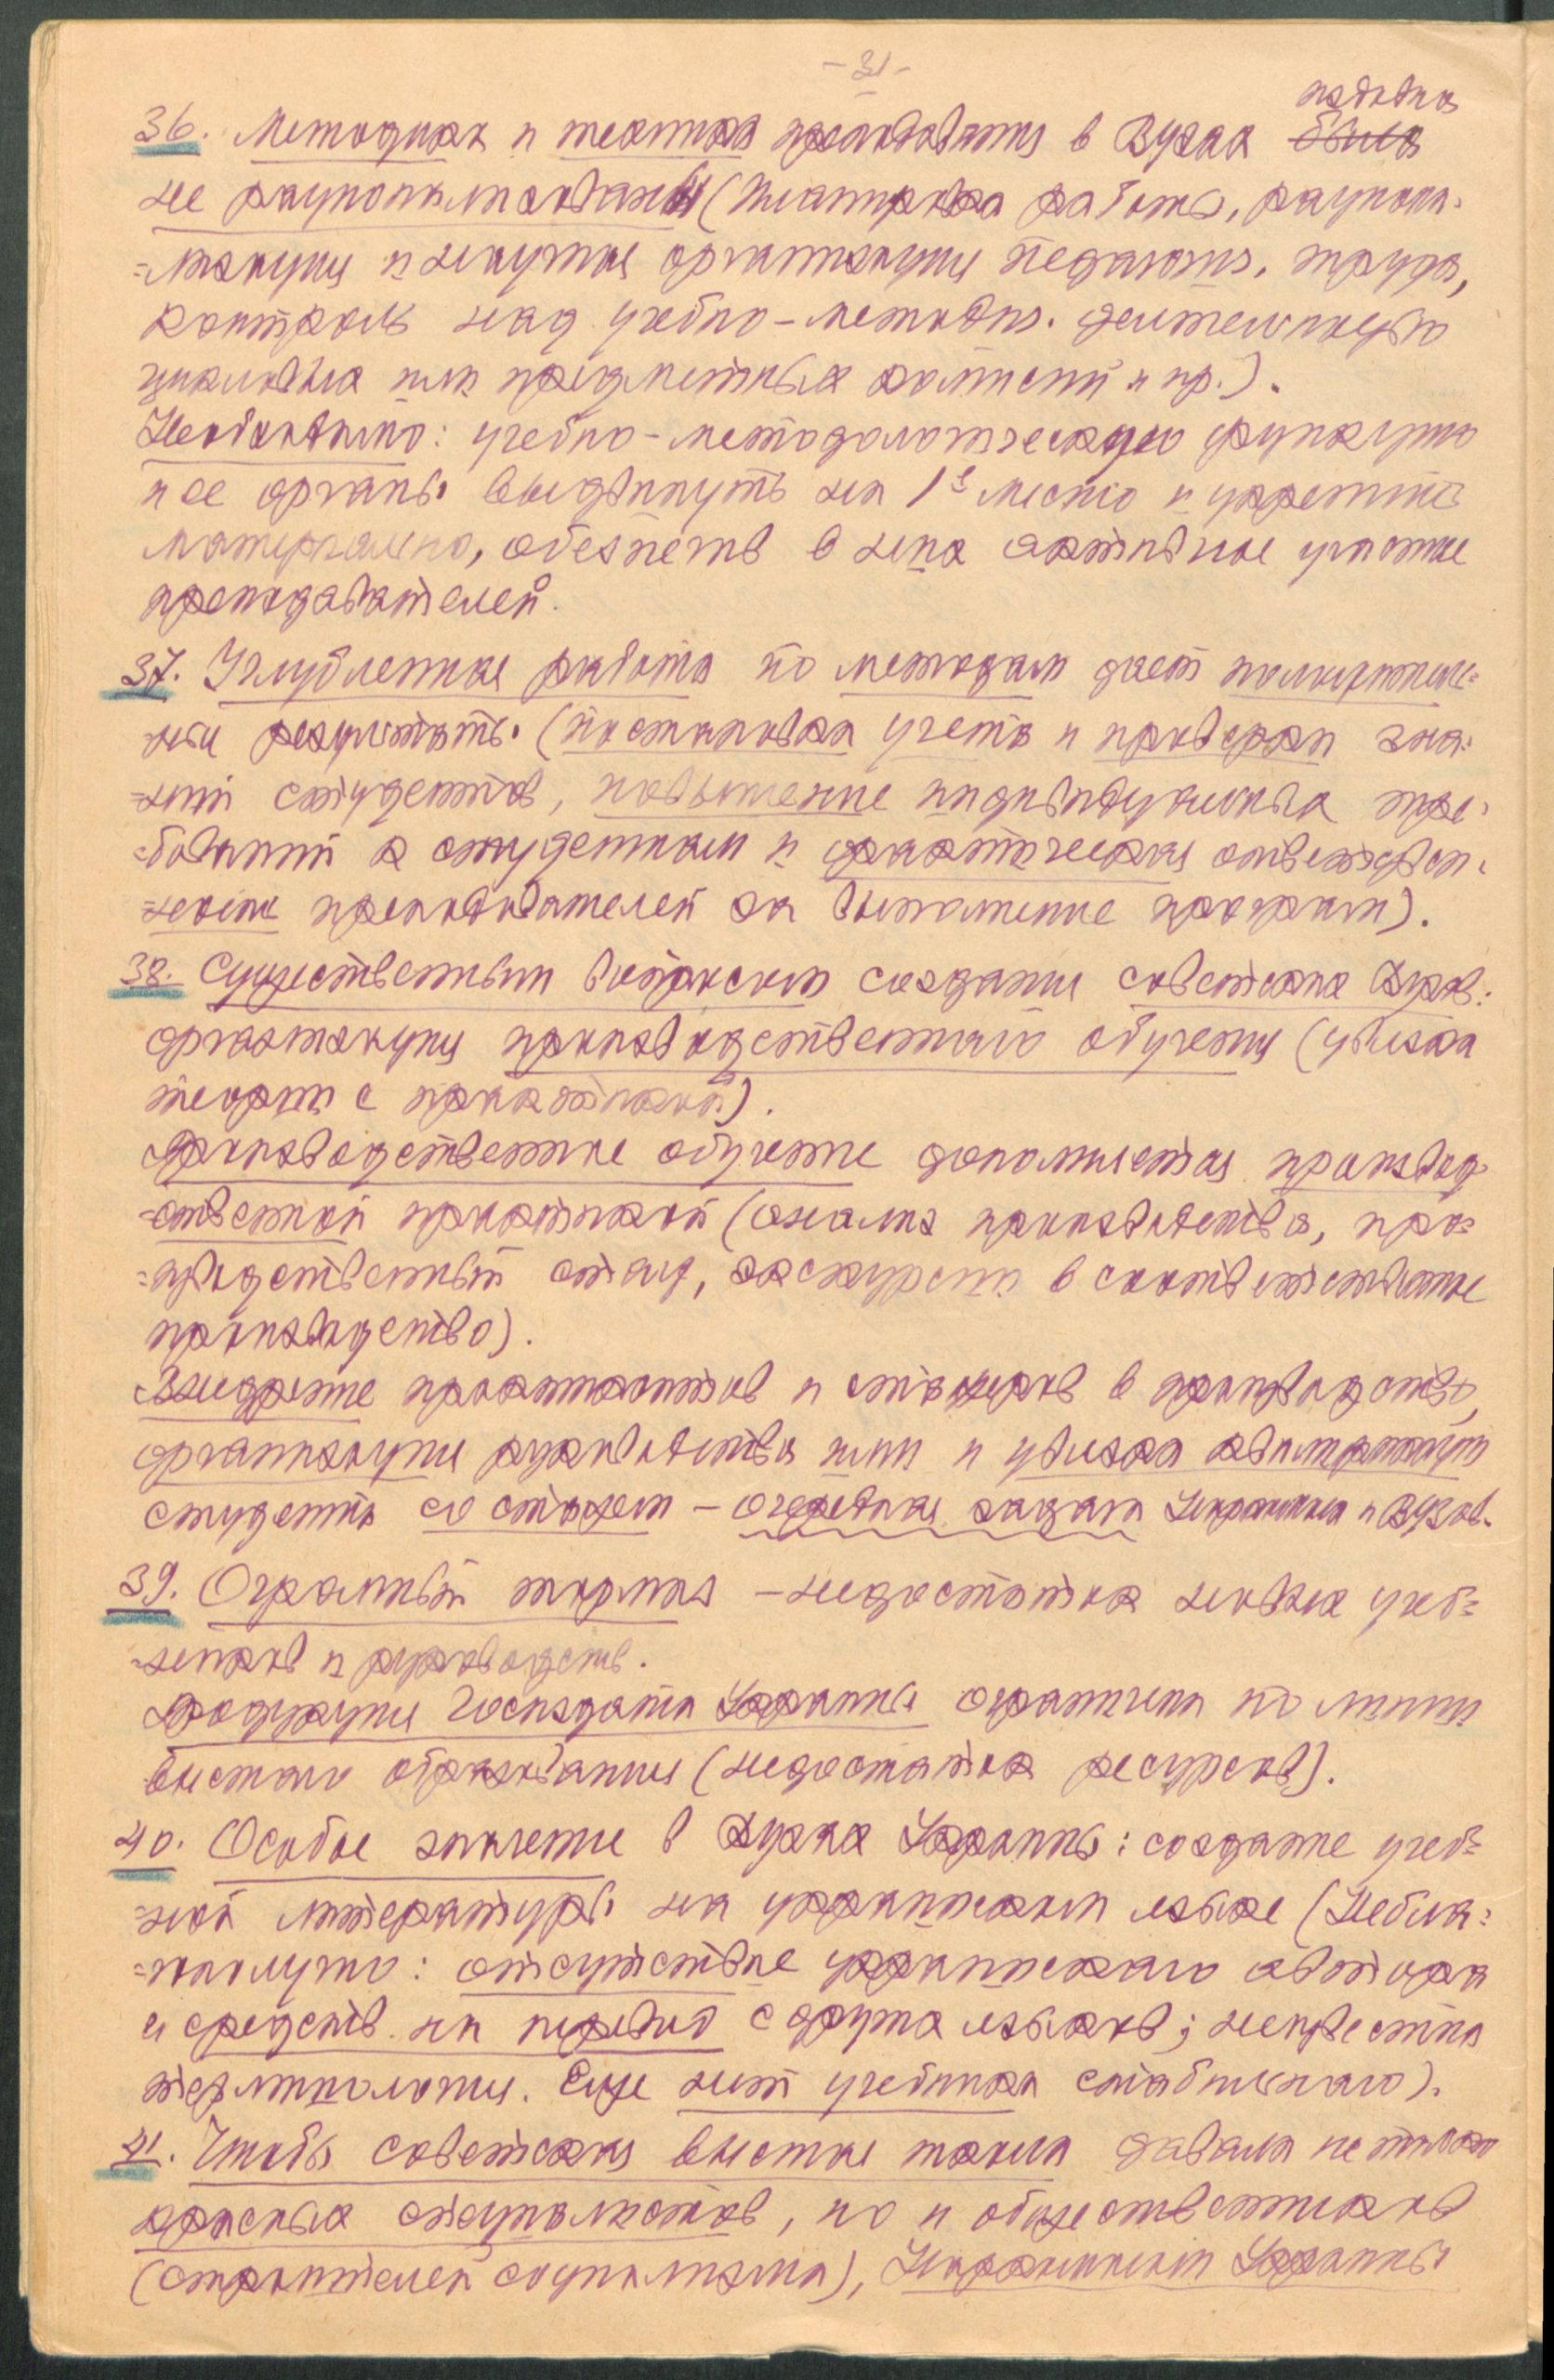 -31-
36. Методика и техника преподавания в Вузах недавно
не рационализированы (планировка работы, рациона-
=лизация и научная организация педагогич. труда,
контроль над учебно-методич. деятельностью
цикловых или предметных комиссий и пр.).
Необходимо: учебно-методологическую функцию
и ее органы выдвинуть на 1е место и укрепить
материально, обеспечив в них активное участие
преподавателей.
37. Углубленная работа по методам дает положитель=
ные результаты (постановка учета и проверки зна-
=ний студентов, повышение индивидуальных тре-
=бований к студентам и фактическая ответствен-
=ность преподавателей за выполнение программ).
38. Существенным вопросом создания советских Вузов:
организация производственного обучения (увязка
теории с практикой).
Производственное обучение дополняется производ-
=ственной практикой (анализ производства, про=
=изводственный стаж, экскурсии в соответствующие
производства).
Внедрение практикантов и стажеров в производство,
организация руководства ими и увязка квалификации
студента со стажем – очередная задача Наркомпроса и Вузов.
39. Огромный тормаз – недостаток новых учеб=
=ников и руководств.
Продукция Госиздата Украины ограничена по линии
высшаго образования (недостаток ресурсов).
40. Особое значение в Вузах Украины: создание учеб=
=ной литературы на украинском языке (Небла=
=гополучно: отсутствие украинскаго автора
и средств на перевод с других языков; неизвестна
терминология. Еще нет учебника стабильнаго).
41. Чтобы советская высшая школа давала не только
красных специалистов, но и общественников
(строителей социализма), Наркомпрос Украины